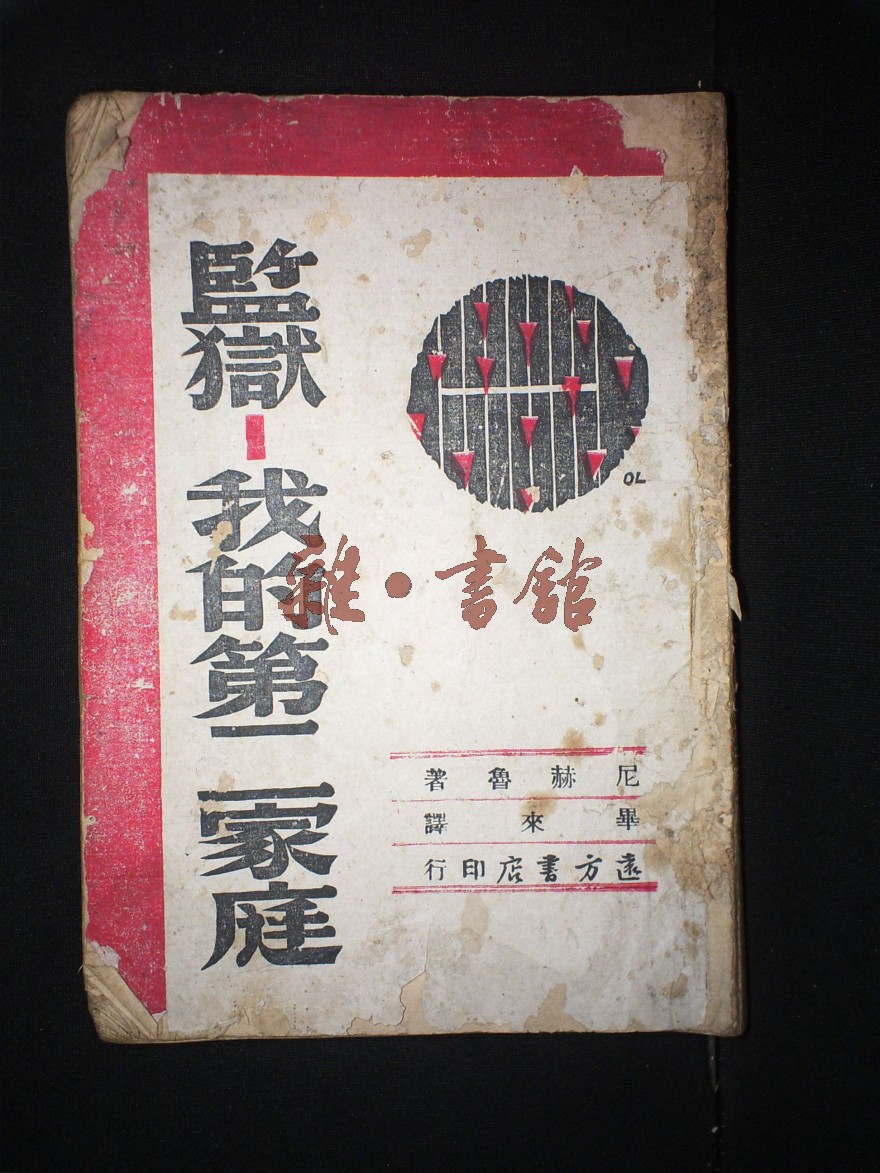 監獄-我的第二家庭
OL
雜·書館
尼赫魯著
畢來譯
遠方書店印行